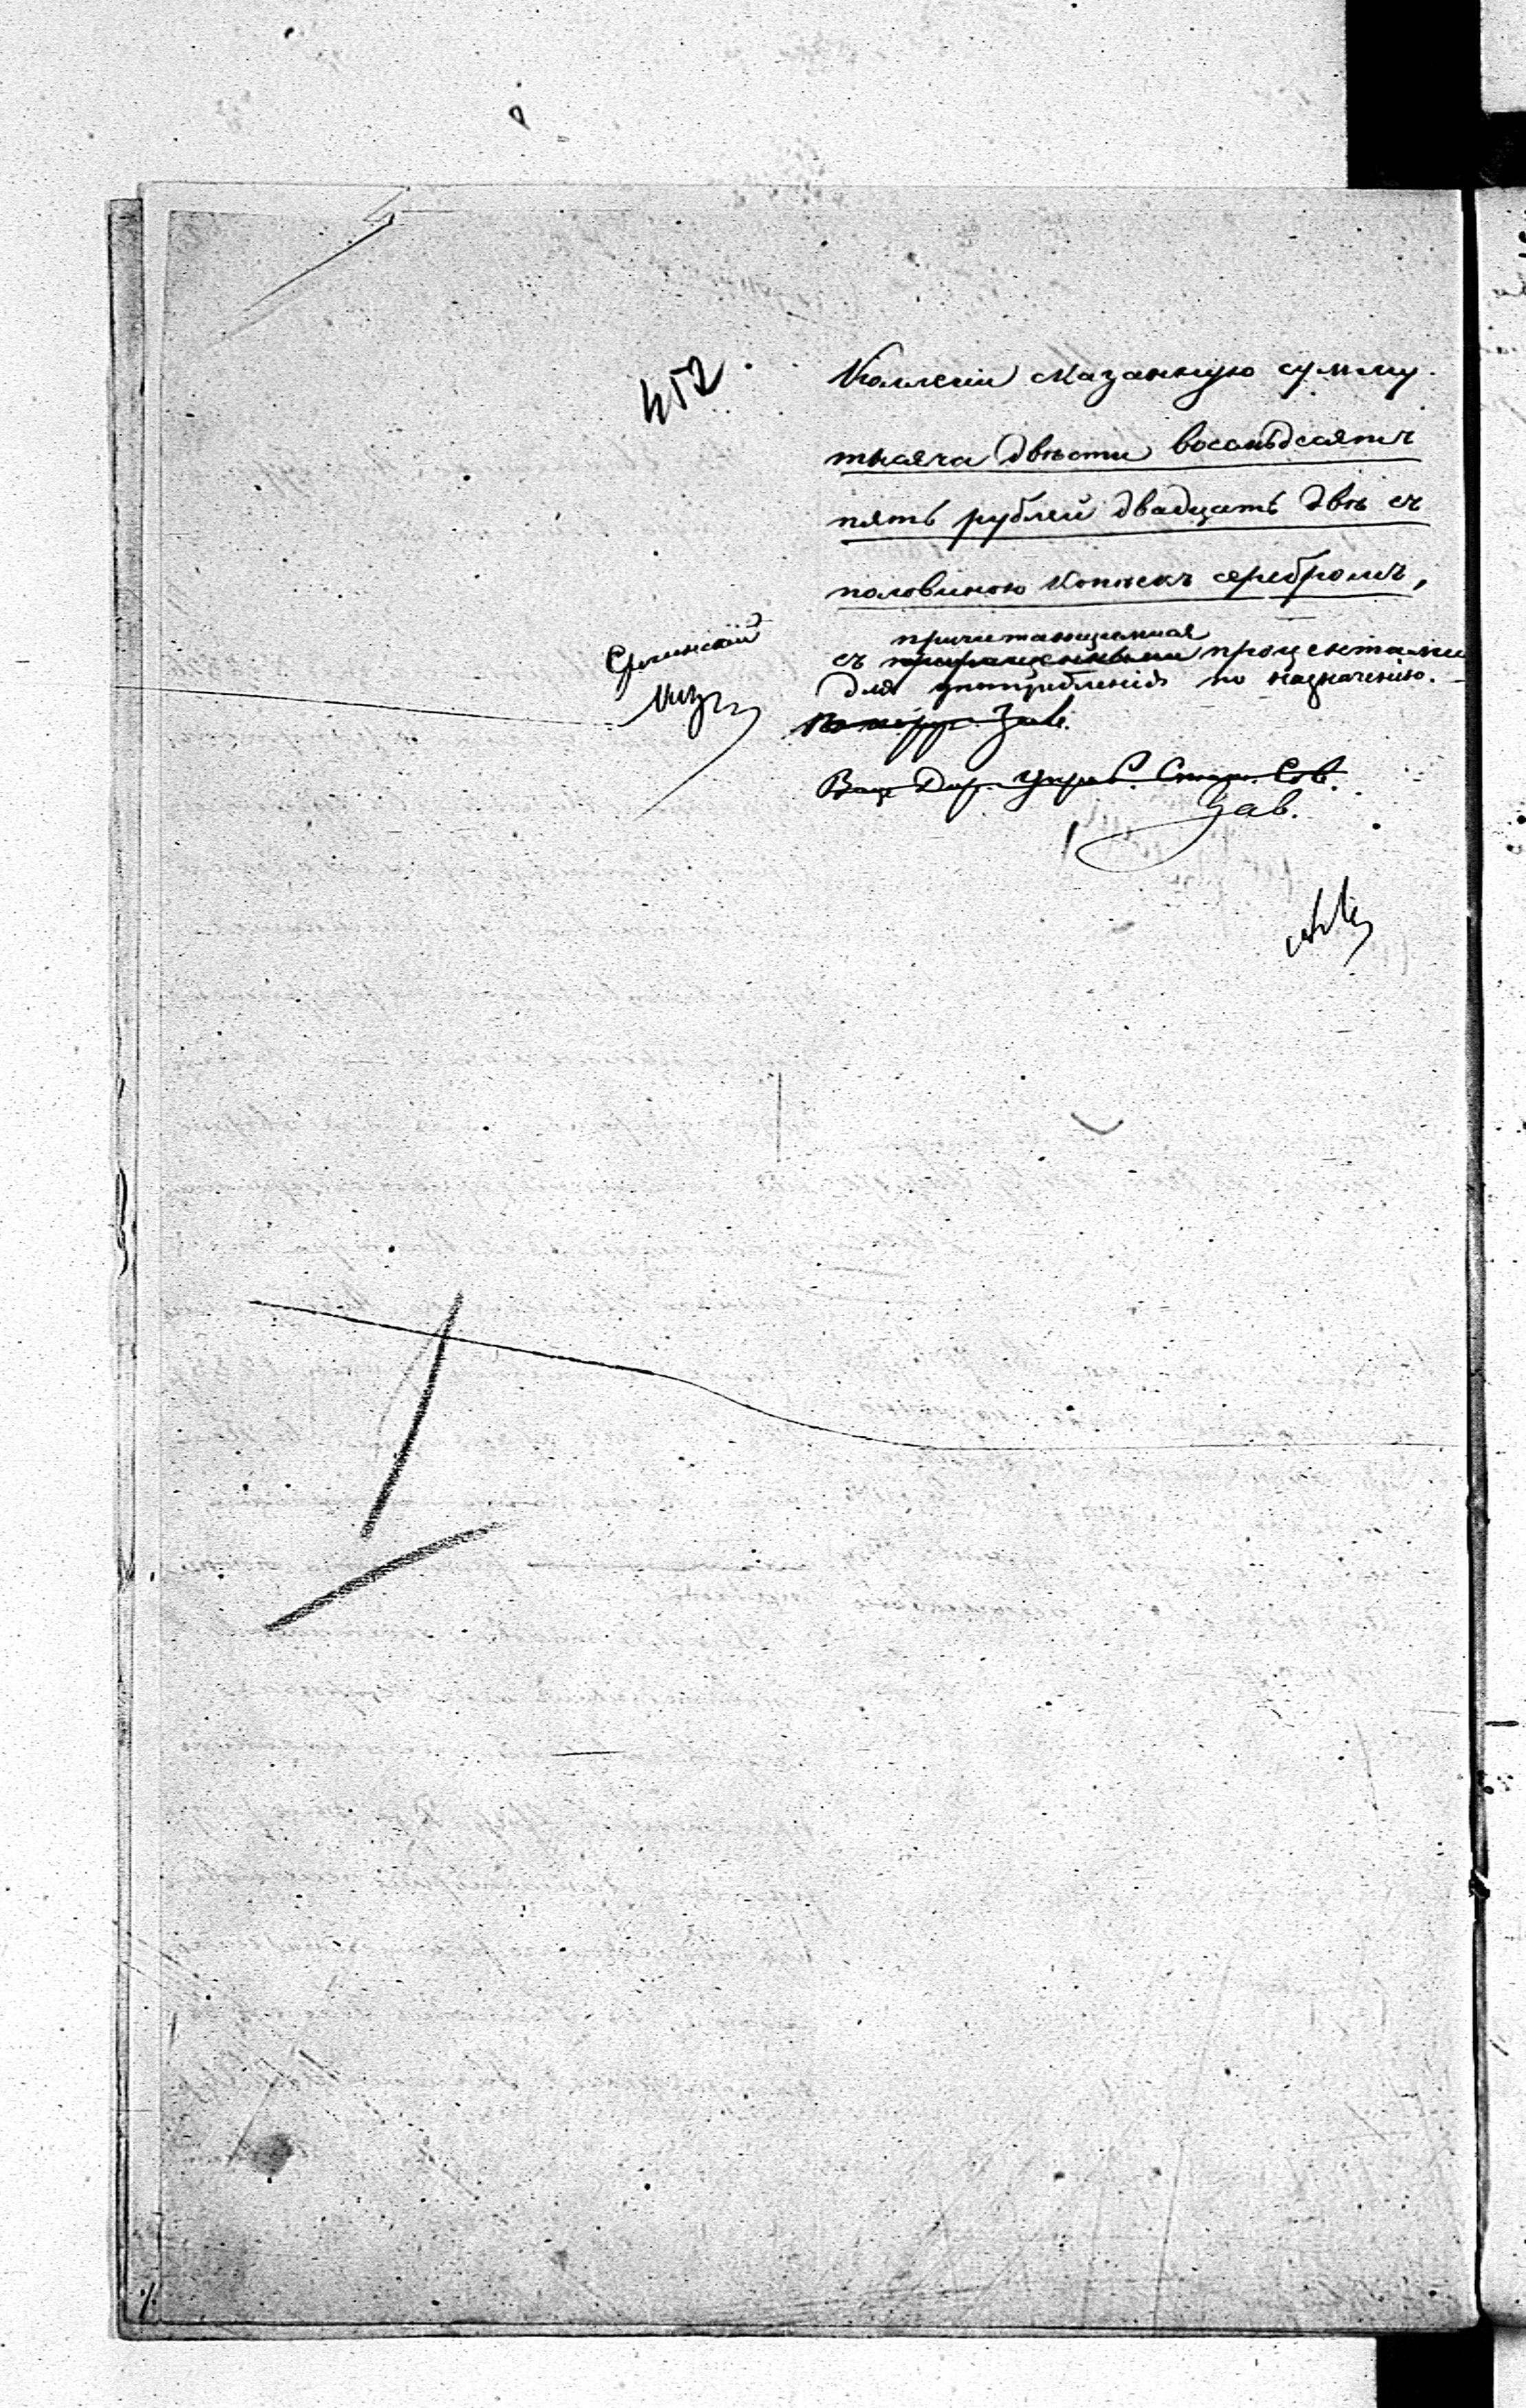 452.
Коллегіи сказанную сумму
тысяча двѣсти восемьдесятъ
пять рублей двадцать двѣ съ
половиною копѣекъ серебромъ,
причитающимися
съ процентами
для употребленія по назначенію.
Вице Дир. Управ. Стат. Сов.
Зав.